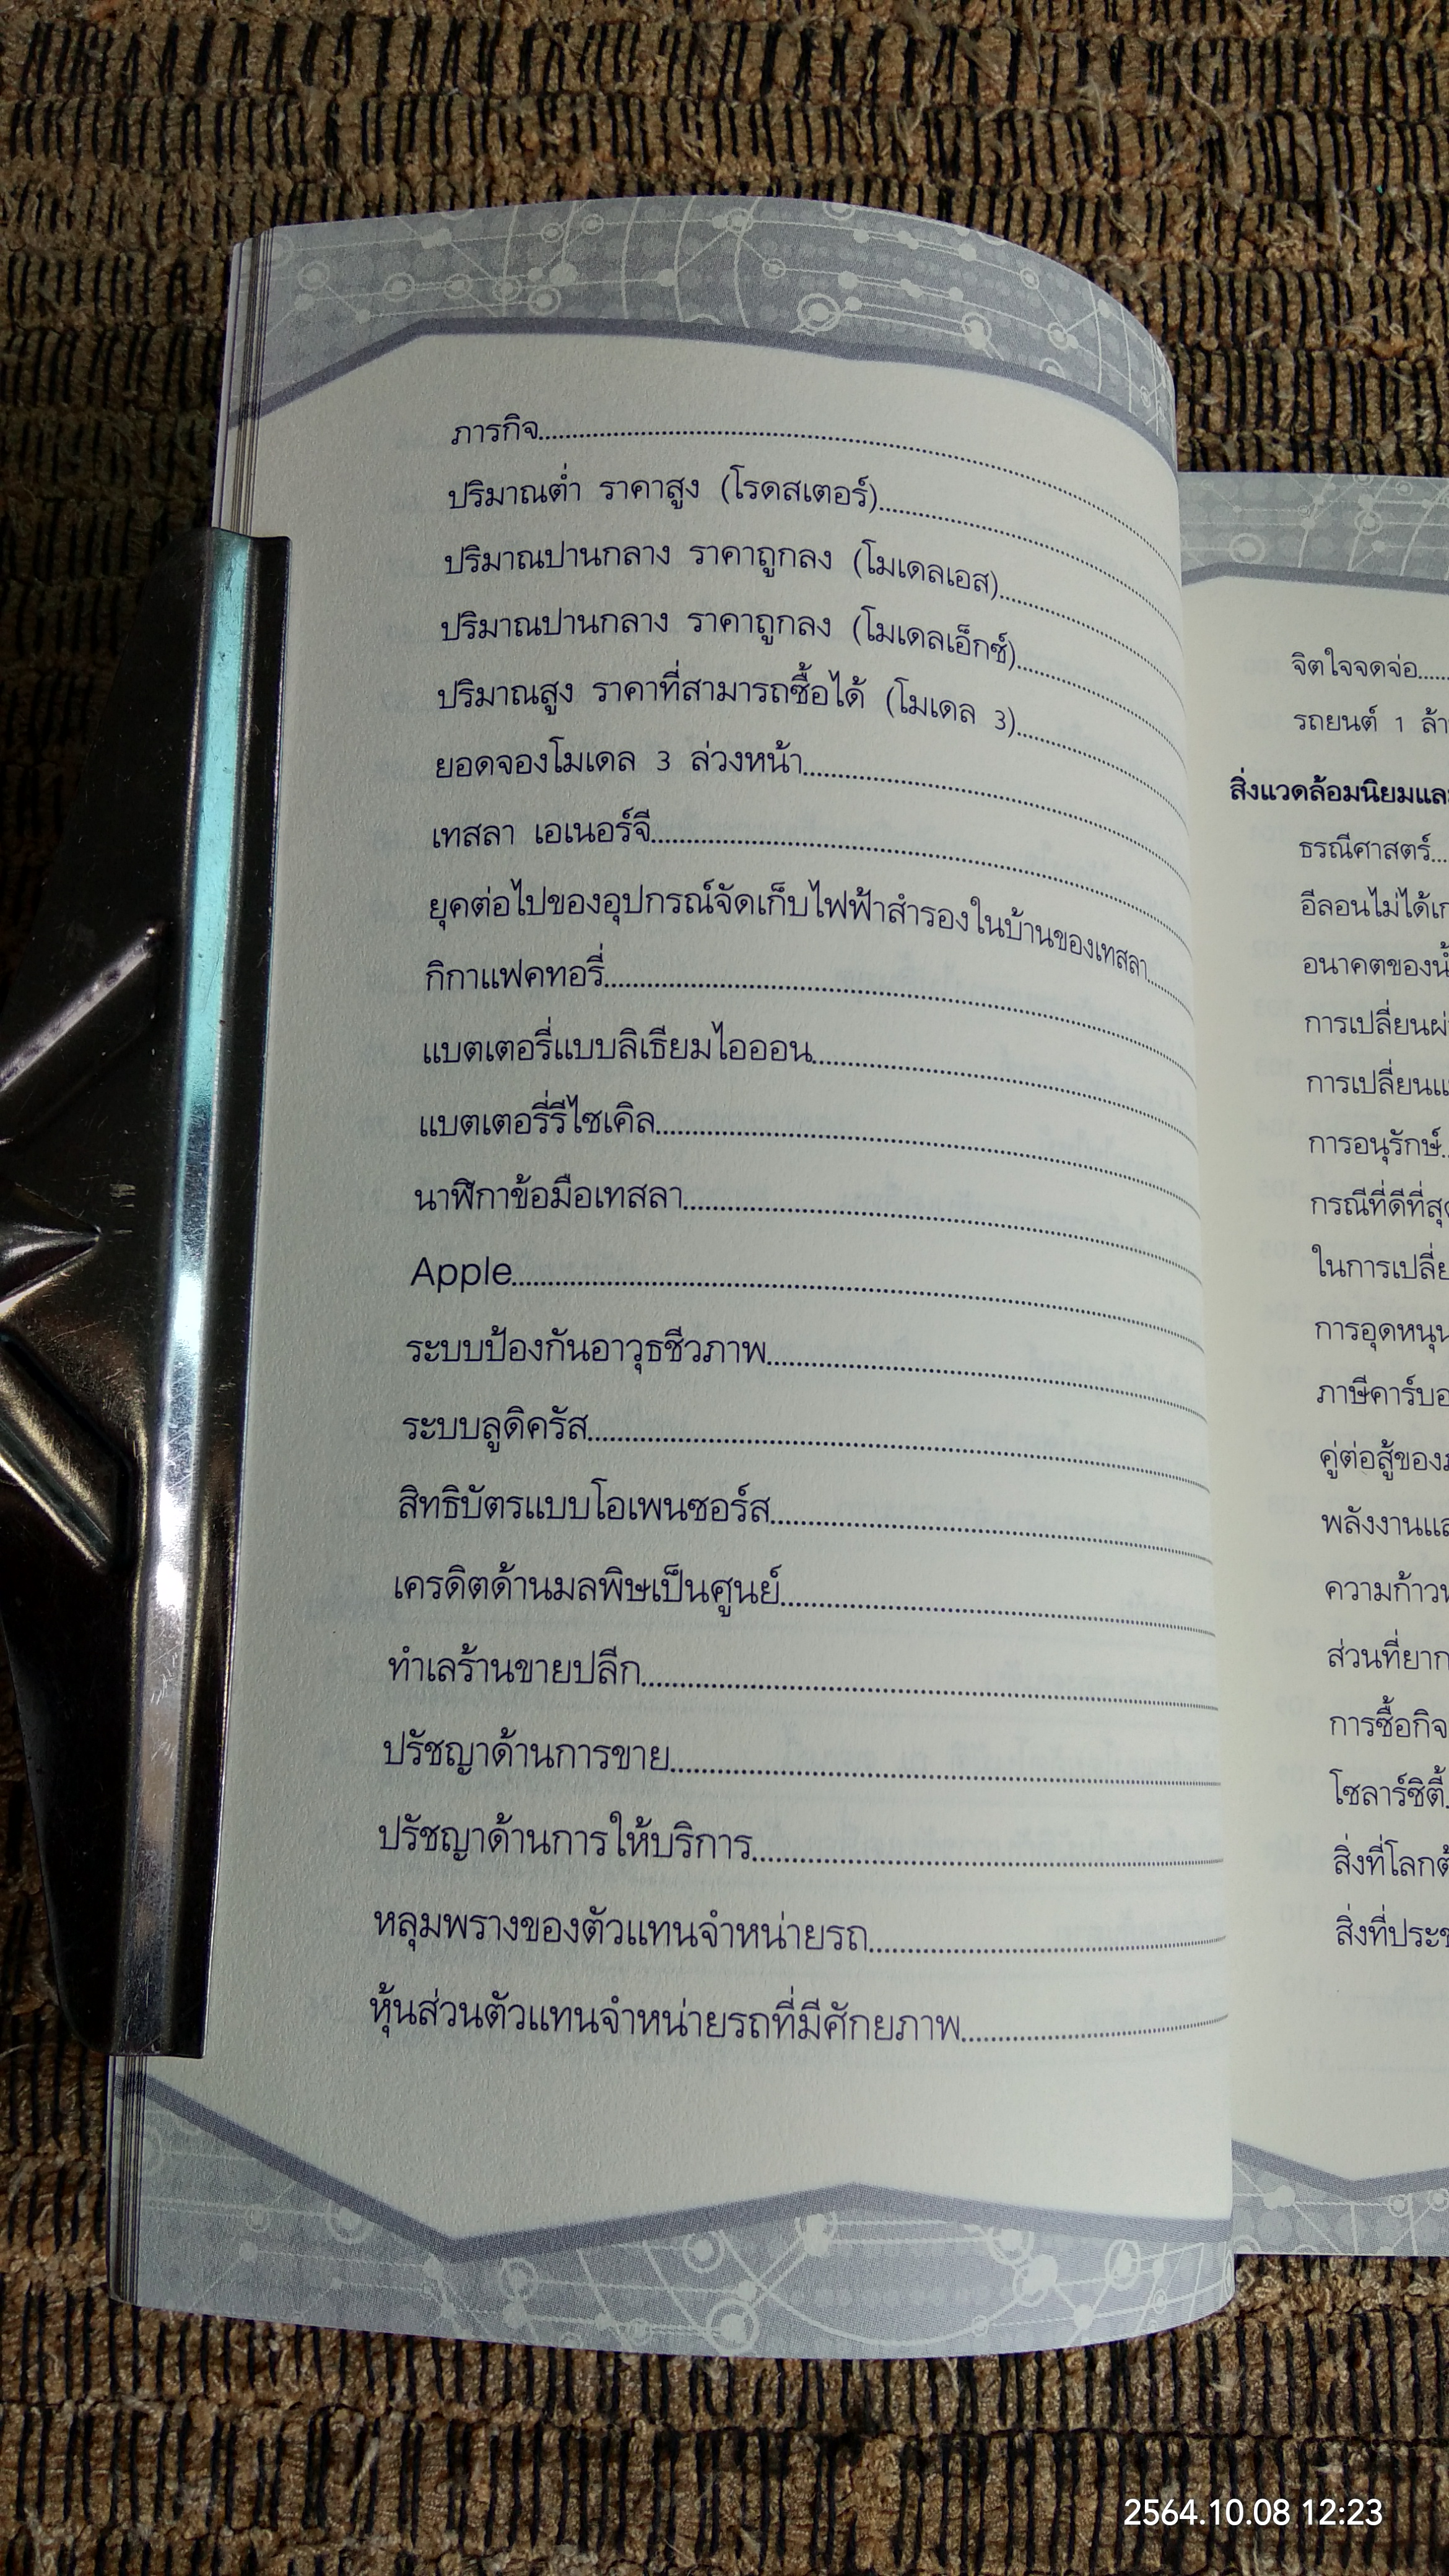 ภารกิจ
ปริมาณต่ำ ราคาสูง (โรดสเตอร์)
ปริมาณปานกลาง ราคาถูกลง (โมเดลเอส)
ปริมาณปานกลาง ราคาถูกลง (โมเดลเอ็กซ์)
ปริมาณสูง ราคาที่สามารถซื้อได้ (โมเดล 3)
ยอดจองโมเดล 3 ล่วงหน้า
เทสลา เอเนอร์จี
ยุคต่อไปของอุปกรณ์จัดเก็บไฟฟ้าสำรองในบ้านของเทสลา
กิกาแฟคทอรี่
แบตเตอรี่แบบลิเธียมไอออน
แบตเตอรี่รีไซเคิล
นาฬิกาข้อมือเทสลา
Apple
ระบบป้องกันอาวุธชีวภาพ
ระบบลูดิครัส
สิทธิบัตรแบบโอเพนซอร์ส
เครดิตด้านมลพิษเป็นศูนย์
ทำเลร้านขายปลีก
ปรัชญาด้านการขาย
ปรัชญาด้านการให้บริการ
หลุมพรางของตัวแทนจำหน่ายรถ
หุ้นส่วนตัวแทนจำหน่ายรถที่มีศักยภาพ
จิตใจจดจ่อ
รถยนต์ 1
สิ่งแวดล้อมนิยมและ
ธรณีศาสตร์
อีลอนไม่ได้
อนาคตของ
การเปลี่ยน
การเปลี่ยน
การอนุรักษ์
กรณีที่ดีที่สุด
ในการ
การอุดหนุน
ภาษี
คู่ต่อสู้ของ
พลังงาน
ความ
ส่วนที่ยาก
การซื้อ
โซลาร์ซิตี้
สิ่งที่โลก
สิ่งที่
2564.10.08 12:23